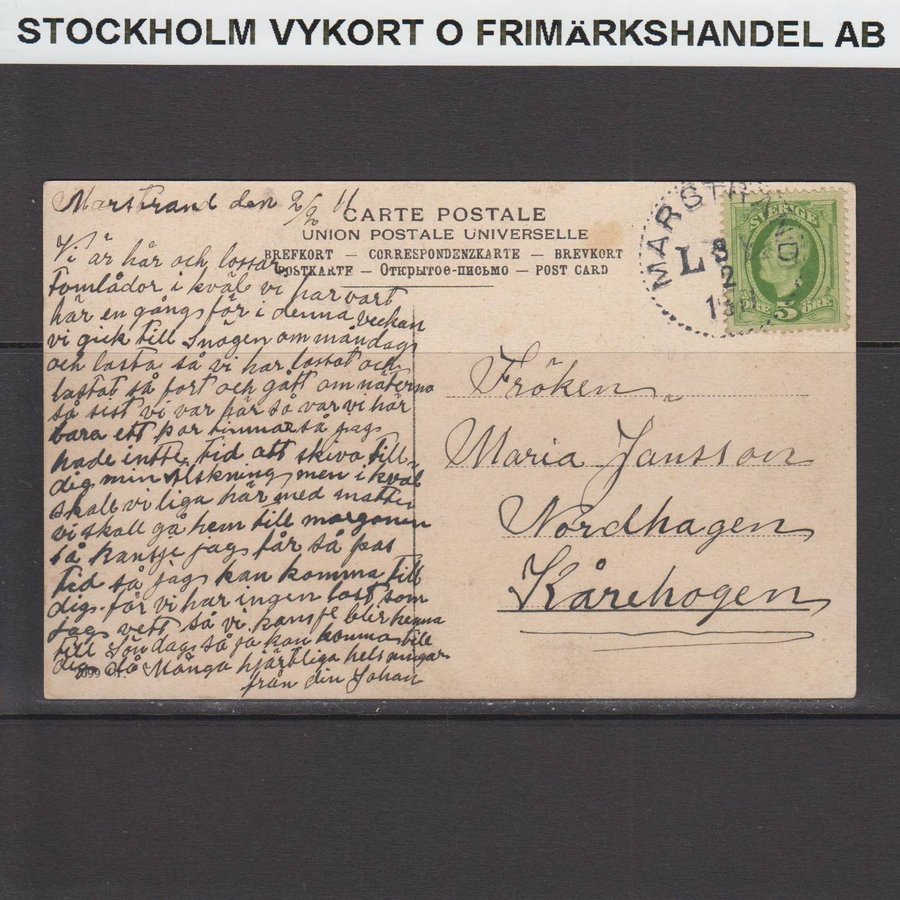 STOCKHOLM VYKORT O FRIMÄRKSHANDEL AB
Marstrand den 2/2 11
CARTE POSTALE
UNION POSTALE UNIVERSELLE
BREFKORT — CORRESPONDENZKARTE — BREVKORT
POSTKARTE — Открытое-письмо — POST CARD
MARSTRAND
L
SVERIGE
5
ÖRE
Vi är här och lossar
Tomlådor i kväl vi har vart
här en gångs för i denna veckan
vi gick till Snögen om måndags
och lasta så vi har lossat och
lastat så fort och gått om näterna
så sist vi var här så var vi här
bara ett par timmar så jags
hade intte tid att skiva till
dig min älskning men i kväl
skall vi liga här med natten
vi skall gå hem till margonen
så kansje jags får så pas
tid så jags kan komma till
dig. för vi har ingen last som
jags vett så vi kansje blir hemma
till Söndags så ja kan komma till
dig då Många hjärtliga helsningar
från din Johan
Fröken
Maria Jansson
Nordhagen
Kårehogen